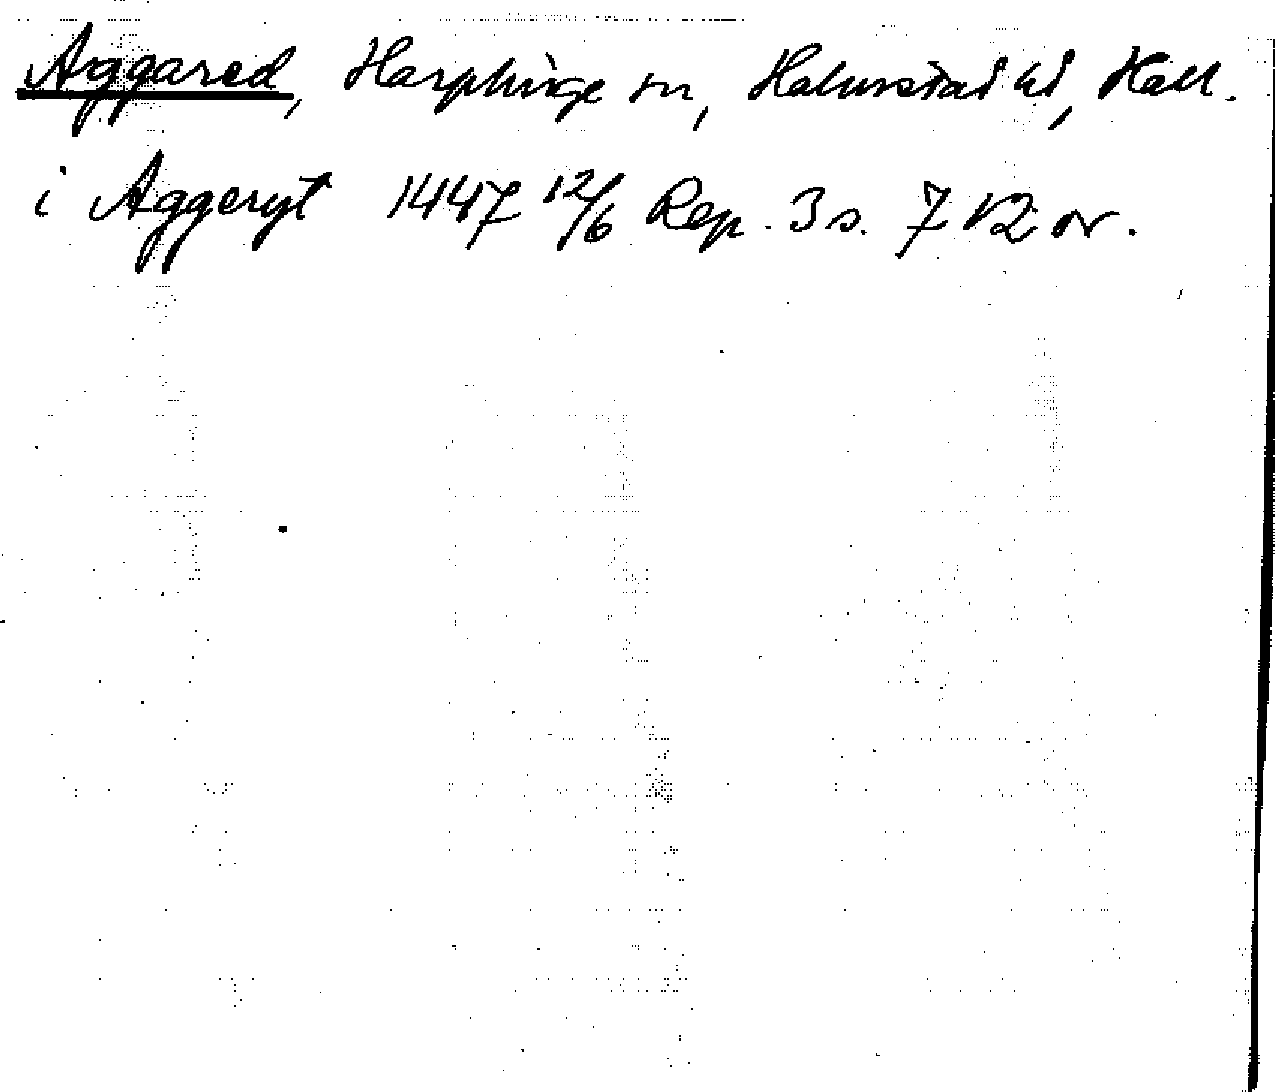 Aggared, Harplinge sn, Halmstad hd, Hall.
i Aggeryt 1447 12/6 Rep. 3 s. 712 or.